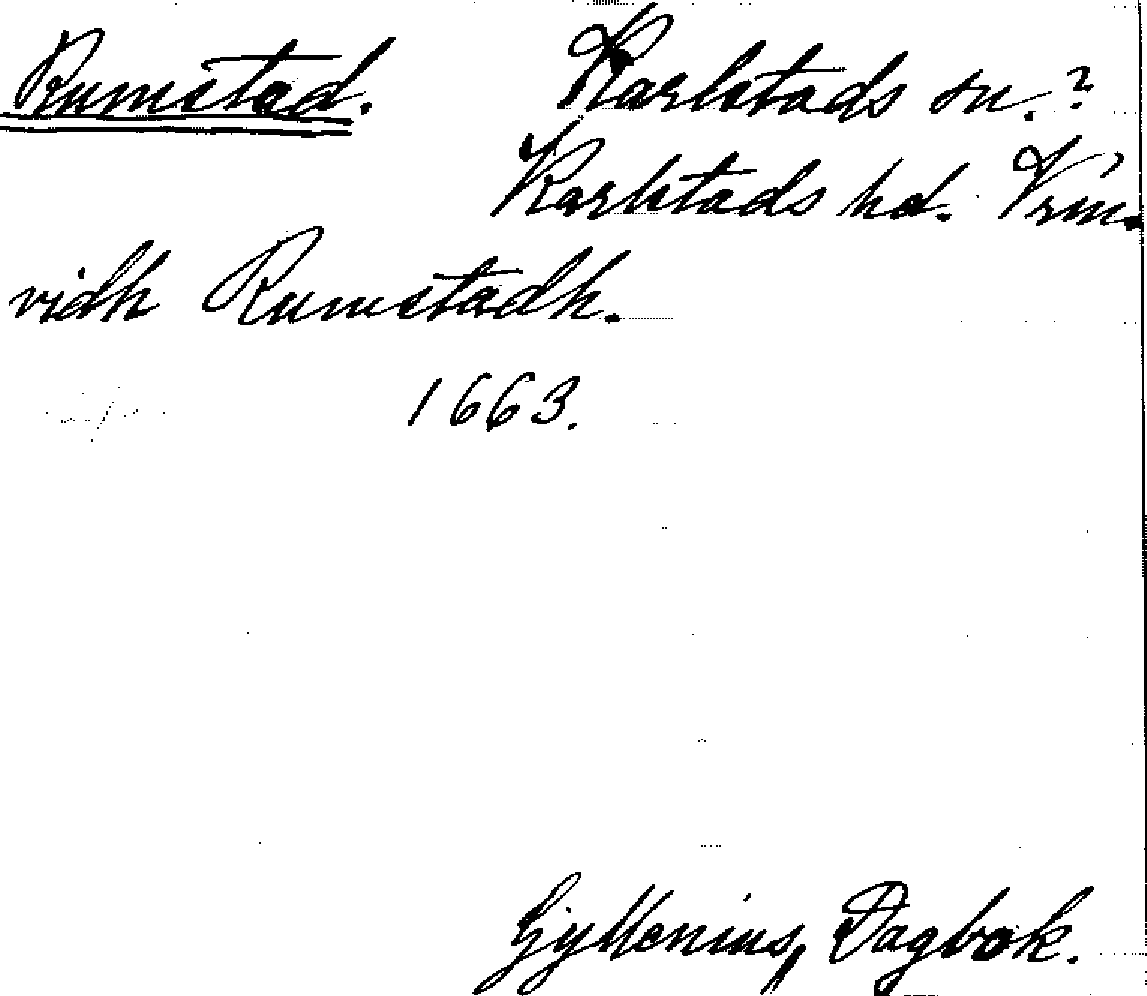 Rumstad. Karlstads sn.?
Karlstads hd. Vrm.
vidh Rumstadh.
1663.
Gyllenius, Dagbok.